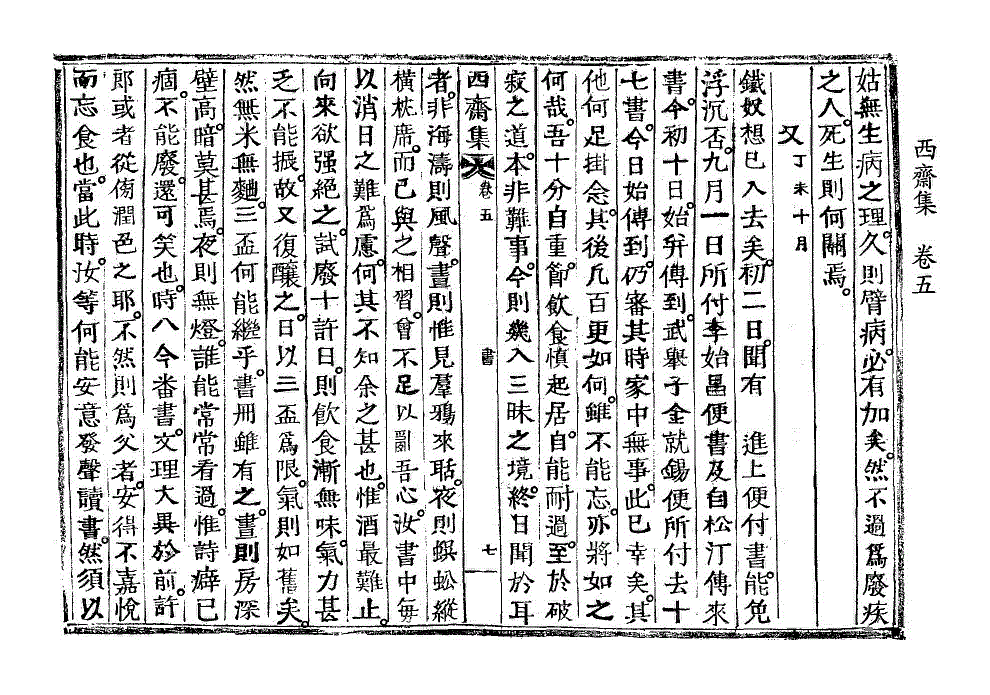 西齋集　卷五
姑無生病之理久則臂病必有加矣然不過爲廢疾
之人死生則何關焉
又丁未十月
鐵奴想已入去矣初二日聞有　進上便付書能免
浮沉否九月一日所付李始昌便書及自松汀傳來
書今初十日始幷傳到武擧子金就錫便所付去十
七書今日始傳到仍審其時家中無事此已幸矣其
他何足掛念其後凡百更如何雖不能忘亦將如之
何哉吾十分自重節飮食愼起居自能耐過至於破
寂之道本非難事今則幾入三昧之境終日聞於耳
西齋集　卷五　書　七
者非海濤則風聲晝則惟見羣鴉來聒夜則蜈蚣縱
橫枕席而已與之相習曾不足以亂吾心汝書中每
以消日之難爲慮何其不知余之甚也惟酒最難止
向來欲强絶之試廢十許日則飮食漸無味氣力甚
乏不能振故又復釀之日以三盃爲限氣則如舊矣
然無米無麯三盃何能繼乎書冊雖有之晝則房深
壁高暗莫甚焉夜則無燈誰能常常看過惟詩癖已
痼不能廢還可笑也時八今番書文理大異於前許
郞或者從傍潤色之耶不然則爲父者安得不嘉悅
而忘食也當此時汝等何能安意發聲讀書然須以